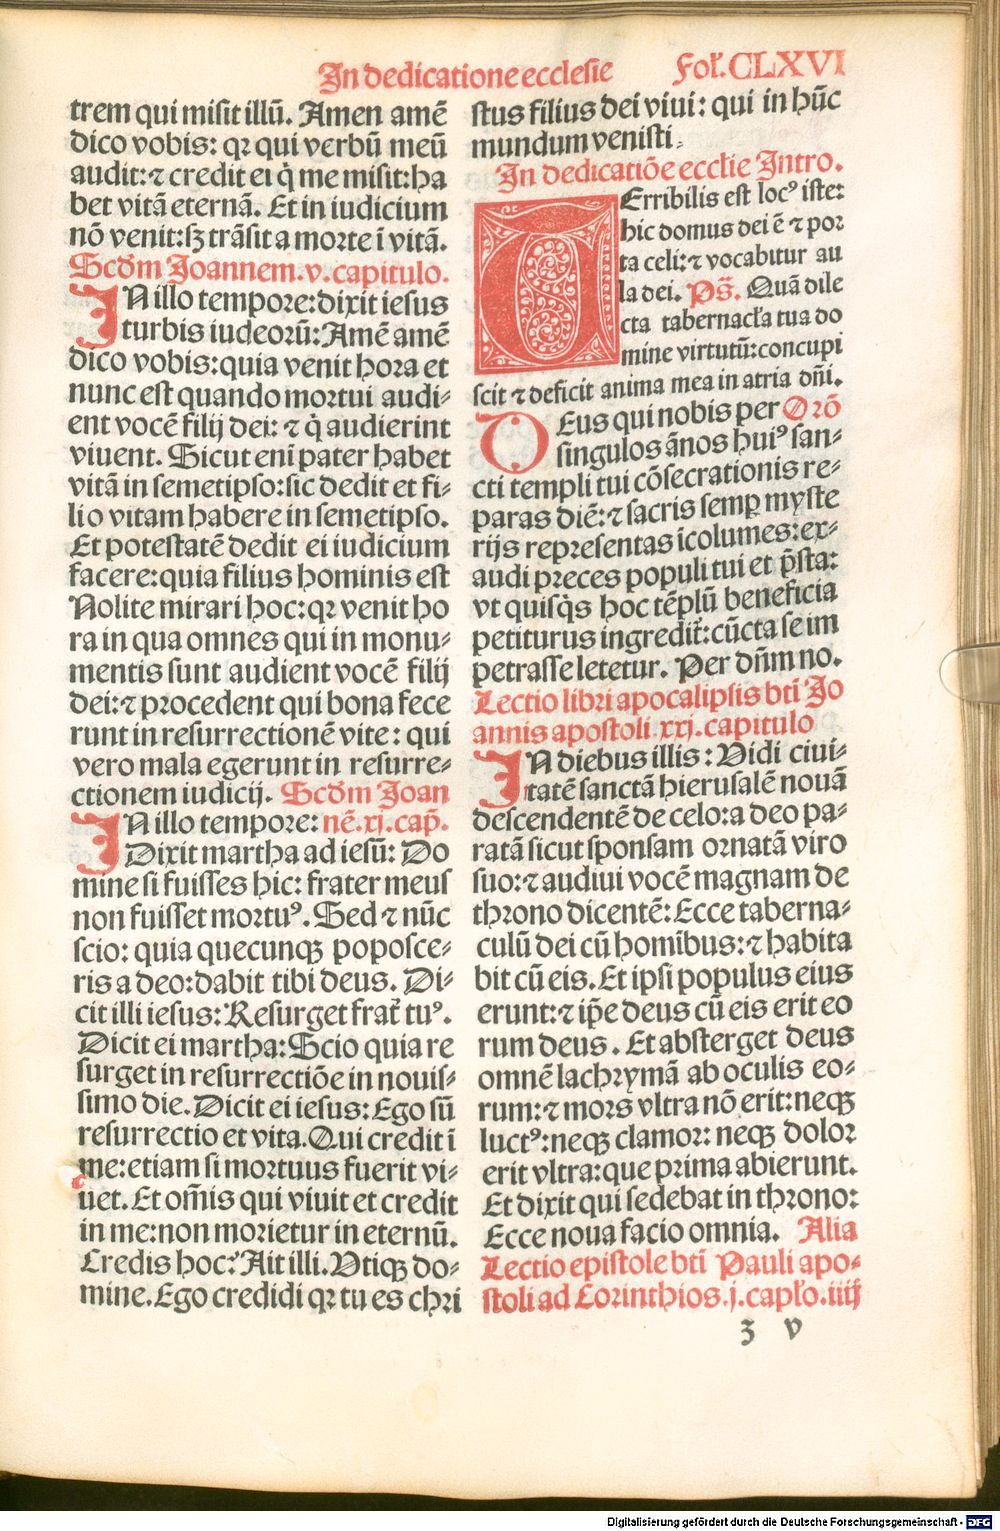 In dedicatione ecclesie Fol̛. CLXVI
trem qui misit illū. Amen amē
dico vobis: qꝛ qui verbū meū
audit: ⁊ credit ei q̇ me misit: ha
bet vitā eternā. Et in iudicium
nō venit: sꝫ trāsit a morte ī vitā.
Scd̄m Joannem. v. capitulo.
IN illo tempore: dixit iesus
turbis iudeorū: Amē amē
dico vobis: quia venit hora et
nunc est quando mortui audi⸗
ent vocē filij dei: ⁊ q̇ audierint
viuent. Sicut enī pater habet
vitā in semetipso: sic dedit et fi⸗
lio vitam habere in semetipso.
Et potestatē dedit ei iudicium
facere: quia filius hominis est
Nolite mirari hoc: qꝛ venit ho
ra in qua omnes qui in monu⸗
mentis sunt audient vocē filij
dei: ⁊ procedent qui bona fece
runt in resurrectionē vite: qui
vero mala egerunt in resurre⸗
ctionem iudicij. Scd̄m Joan
IN illo tempore: nē. xj. cap̄.
Dixit martha ad iesū: Do
mine si fuisses hic: frater meus
non fuisset mortuꝰ. Sed ⁊ nūc
scio: quia quecunqꝫ poposce⸗
ris a deo: dabit tibi deus. Di⸗
cit illi iesus: Resurget frat̛ tuꝰ.
Dicit ei martha: Scio quia re
surget in resurrectiōe in nouis⸗
simo die. Dicit ei iesus: Ego sū
resurrectio et vita. Qui credit ī
me: etiam si mortuus fuerit vi⸗
uet. Et om̄is qui viuit et credit
in me: non morietur in eternū.
Credis hoc? Ait illi. Vtiqꝫ do⸗
mine. Ego credidi qꝛ tu es chri
stus filius dei viui: qui in hūc
mundum venisti.
In dedicatiōe ecclie Intro.
TErribilis est locꝰ iste:
hic domus dei ē ⁊ por
ta celi: ⁊ vocabitur au
la dei. Ps̄. Quā dile
cta tabernacl̛a tua do
mine virtutū: concupi
scit ⁊ deficit anima mea in atria dn̄i.
DEus qui nobis per Orō
singulos ānos huiꝰ san⸗
cti templi tui cōsecrationis re⸗
paras diē: ⁊ sacris semꝑ myste
rijs representas īcolumes: ex⸗
audi preces populi tui et p̄sta:
vt quisq̇s hoc tēplū beneficia
petiturus ingredit̛: cūcta se im
petrasse letetur. Per dn̄m no.
Lectio libri apocalipsis bti̅ Jo
annis apostoli. xxj. capitulo
IN diebus illis: Vidi ciui⸗
tatē sanctā hierusalē nouā
descendentē de celo: a deo pa⸗
ratā sicut sponsam ornatā viro
suo: ⁊ audiui vocē magnam de
throno dicentē: Ecce taberna⸗
culū dei cū homībus: ⁊ habita
bit cū eis. Et ipsi populus eius
erunt: ⁊ ip̄e deus cū eis erit eo
rum deus. Et absterget deus
omnē lachrymā ab oculis eo⸗
rum: ⁊ mors vltra nō erit: neqꝫ
luctꝰ: neqꝫ clamor: neqꝫ dolor
erit vltra: que prima abierunt.
Et dixit qui sedebat in throno:
Ecce noua facio omnia. Alia
Lectio epistole bti̅ Pauli apo⸗
stoli ad Corinthios. j. capl̛o. iiij
ʒ v
Digitalisierung gefördert durch die Deutsche Forschungsgemeinschaft - DFG